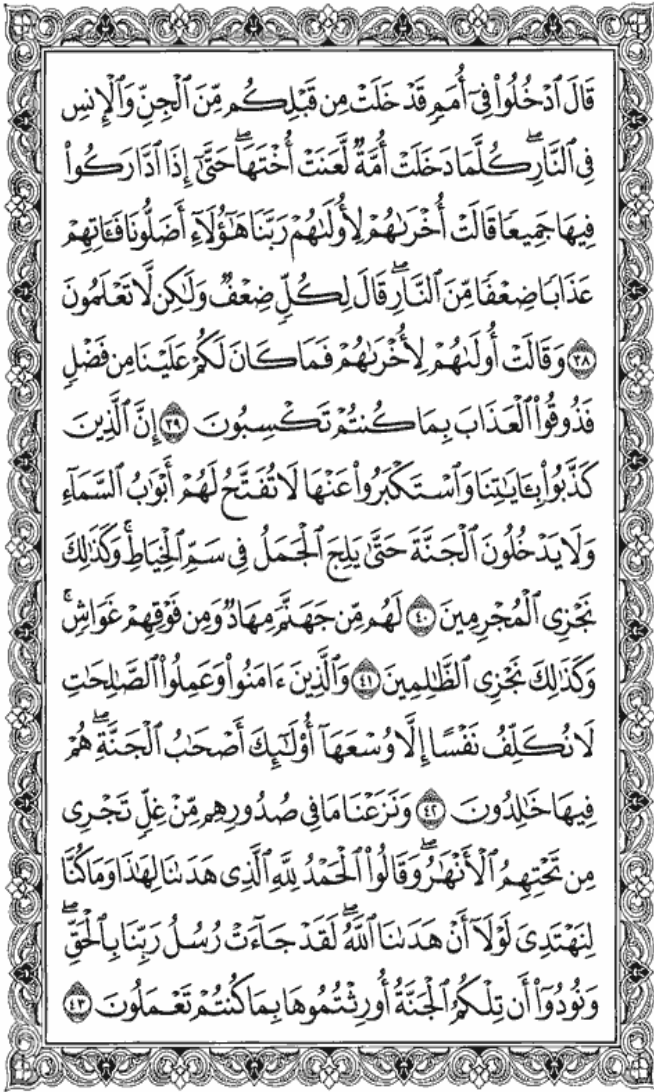 قَالَ ٱدْخُلُواْ فِىٓ أُمَمٍ قَدْ خَلَتْ مِن قَبْلِكُم مِّنَ ٱلْجِنِّ وَٱلْإِنسِ
فِى ٱلنَّارِۖ كُلَّمَا دَخَلَتْ أُمَّةٌ لَّعَنَتْ أُخْتَهَاۖ حَتَّىٰٓ إِذَا ٱدَّارَكُواْ
فِيهَا جَمِيعًا قَالَتْ أُخْرَىٰهُمْ لِأُولَىٰهُمْ رَبَّنَا هَٰٓؤُلَآءِ أَضَلُّونَا فَـَٔاتِهِمْ
عَذَابًا ضِعْفًا مِّنَ ٱلنَّارِۖ قَالَ لِكُلٍّ ضِعْفٌ وَلَٰكِن لَّا تَعْلَمُونَ
٣٨ وَقَالَتْ أُولَىٰهُمْ لِأُخْرَىٰهُمْ فَمَا كَانَ لَكُمْ عَلَيْنَا مِن فَضْلٍ
فَذُوقُواْ ٱلْعَذَابَ بِمَا كُنتُمْ تَكْسِبُونَ ٣٩ إِنَّ ٱلَّذِينَ
كَذَّبُواْ بِـَٔايَٰتِنَا وَٱسْتَكْبَرُواْ عَنْهَا لَا تُفَتَّحُ لَهُمْ أَبْوَٰبُ ٱلسَّمَآءِ
وَلَا يَدْخُلُونَ ٱلْجَنَّةَ حَتَّىٰ يَلِجَ ٱلْجَمَلُ فِى سَمِّ ٱلْخِيَاطِۚ وَكَذَٰلِكَ
نَجْزِى ٱلْمُجْرِمِينَ ٤٠ لَهُم مِّن جَهَنَّمَ مِهَادٌ وَمِن فَوْقِهِمْ غَوَاشٍۚ
وَكَذَٰلِكَ نَجْزِى ٱلظَّٰلِمِينَ ٤١ وَٱلَّذِينَ ءَامَنُواْ وَعَمِلُواْ ٱلصَّٰلِحَٰتِ
لَا نُكَلِّفُ نَفْسًا إِلَّا وُسْعَهَآ أُوْلَٰٓئِكَ أَصْحَٰبُ ٱلْجَنَّةِۖ هُمْ
فِيهَا خَٰلِدُونَ ٤٢ وَنَزَعْنَا مَا فِى صُدُورِهِم مِّنْ غِلٍّ تَجْرِى
مِن تَحْتِهِمُ ٱلْأَنْهَٰرُۖ وَقَالُواْ ٱلْحَمْدُ لِلَّهِ ٱلَّذِى هَدَىٰنَا لِهَٰذَا وَمَا كُنَّا
لِنَهْتَدِىَ لَوْلَآ أَنْ هَدَىٰنَا ٱللَّهُۖ لَقَدْ جَآءَتْ رُسُلُ رَبِّنَا بِٱلْحَقِّۖ
وَنُودُوٓاْ أَن تِلْكُمُ ٱلْجَنَّةُ أُورِثْتُمُوهَا بِمَا كُنتُمْ تَعْمَلُونَ ٤٣